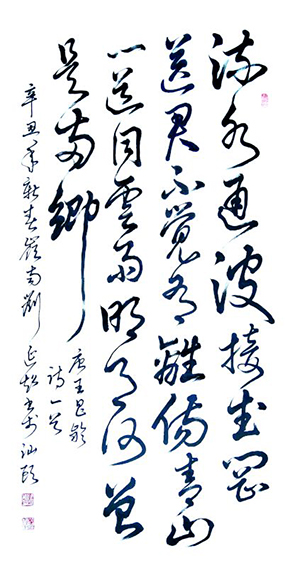 流水通波接武岡
送君不覺有離傷青山
一道同雲雨明月何曾
是兩鄉
唐王昌齡
詩一首
辛丑年新春嶺南劉延超書於汕頭